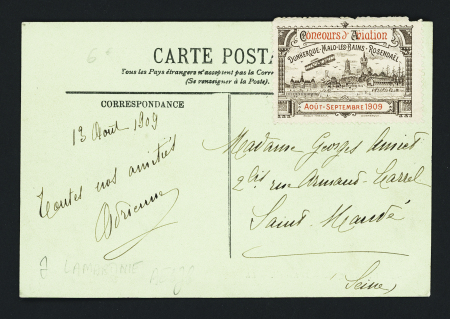 CARTE POSTA
Tous les Pays étrangers n'acceptent pas la Corre
(Se renseigner à la Poste).
Concours d'Aviation
DUNKERQUE-MALO-LES-BAINS-ROSENDAËL
AOÛT-SEPTEMBRE 1909
CORRESPONDANCE
13 Août 1909
Toutes nos amitiés
Adrienne
Madame Georges
2 bis rue Armand-Carrel
Saint-Mandé
Seine